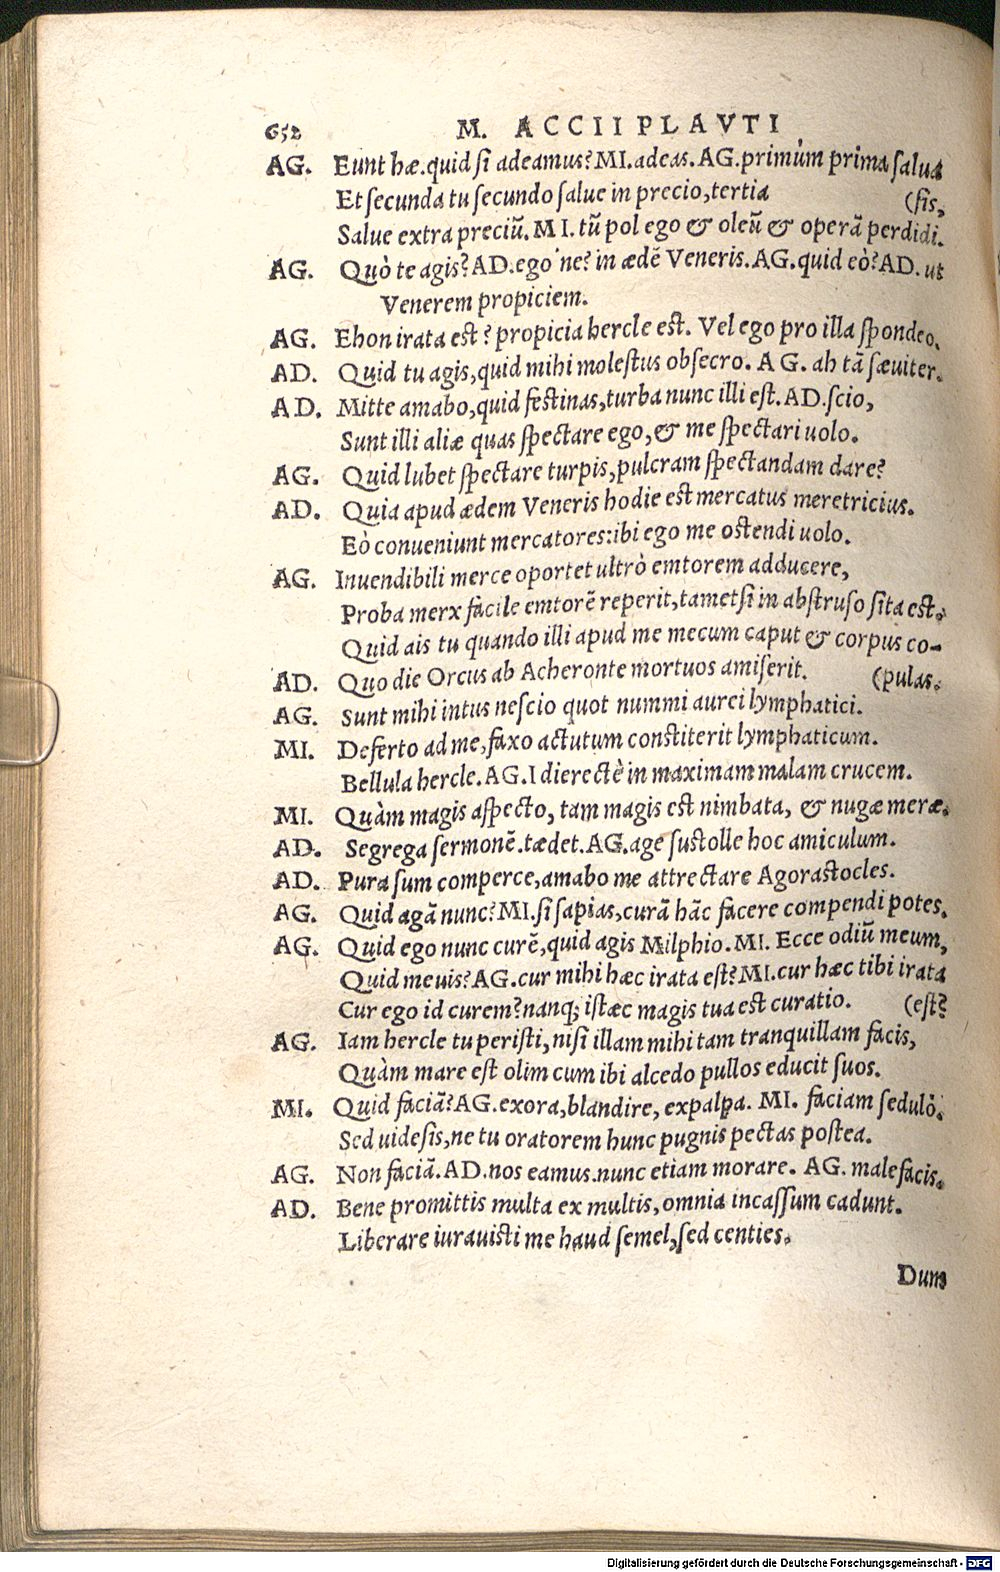 652 M. ACCII PLAVTI
AG. Eunt hæ. quid si adeamus? MI. adeas. AG. primùm prima salua
Et secunda tu secundo salue in precio, tertia (sis,
Salue extra preciũ. MI. tũ pol ego & oleũ & operã perdidi.
AG. Quò te agis? AD. ego ne? in ædẽ Veneris. AG. quid eò? AD. ut
Venerem propiciem.
AG. Ehon irata est? propicia hercle est. Vel ego pro illa spondeo.
AD. Quid tu agis, quid mihi molestus obsecro. AG. ah tã sæuiter.
AD. Mitte amabo, quid festinas, turba nunc illi est. AD. scio,
Sunt illi aliæ quas spectare ego, & me spectari uolo.
AG. Quid lubet spectare turpis, pulcram spectandam dare?
AD. Quia apud ædem Veneris hodie est mercatus meretricius.
Eò conueniunt mercatores: ibi ego me ostendi uolo.
AG. Inuendibili merce oportet ultrò emtorem adducere,
Proba merx facile emtorẽ reperit, tametsi in abstruso sita est.
Quid ais tu quando illi apud me mecum caput & corpus co-
AD. Quo die Orcus ab Acheronte mortuos amiserit. (pulas.
AG. Sunt mihi intus nescio quot nummi aurei lymphatici.
MI. Deferto ad me, faxo actutum constiterit lymphaticum.
Bellula hercle. AG. I dierectè in maximam malam crucem.
MI. Quàm magis aspecto, tam magis est nimbata, & nugæ meræ.
AD. Segrega sermonẽ. tædet. AG. age sustolle hoc amiculum.
AD. Pura sum comperce, amabo me attrectare Agorastocles.
AG. Quid agã nunc? MI. si sapias, curã hãc facere compendi potes.
AG. Quid ego nunc curẽ, quid agis Milphio. MI. Ecce odiũ meum,
Quid me uis? AG. cur mihi hæc irata est? MI. cur hæc tibi irata
Cur ego id curem? nanq; istæc magis tua est curatio. (est?
AG. Iam hercle tu peristi, nisi illam mihi tam tranquillam facis,
Quàm mare est olim cum ibi alcedo pullos educit suos.
MI. Quid faciã? AG. exora, blandire, expalpa. MI. faciam sedulò.
Sed uide sis, ne tu oratorem hunc pugnis pectas postea.
AG. Non faciã. AD. nos eamus. nunc etiam morare. AG. male facis.
AD. Bene promittis multa ex multis, omnia incassum cadunt.
Liberare iurauisti me haud semel, sed centies.
Dum
Digitalisierung gefördert durch die Deutsche Forschungsgemeinschaft - DFG